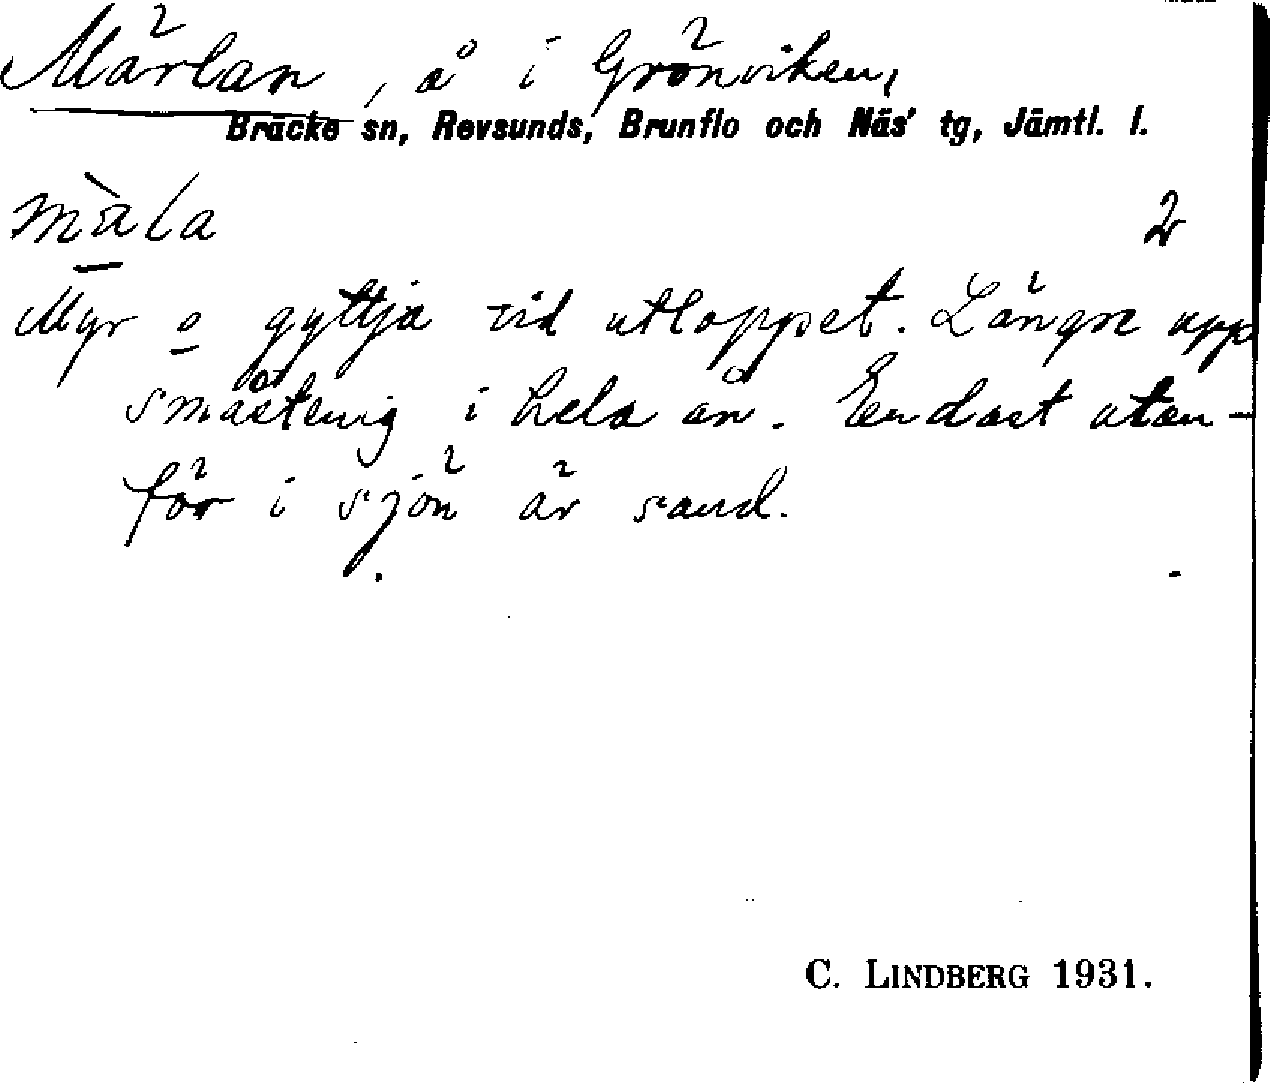 Märlan, å i Grönviken,
Bräcke sn, Revsunds, Brunflo och Näs' tg, Jämtl. l.
mà̱la 2
Myr o gyttja vid utloppet. Längre upp
småstenig i hela ån. Endast utan-
för i sjön är sand.
C. LINDBERG 1931.